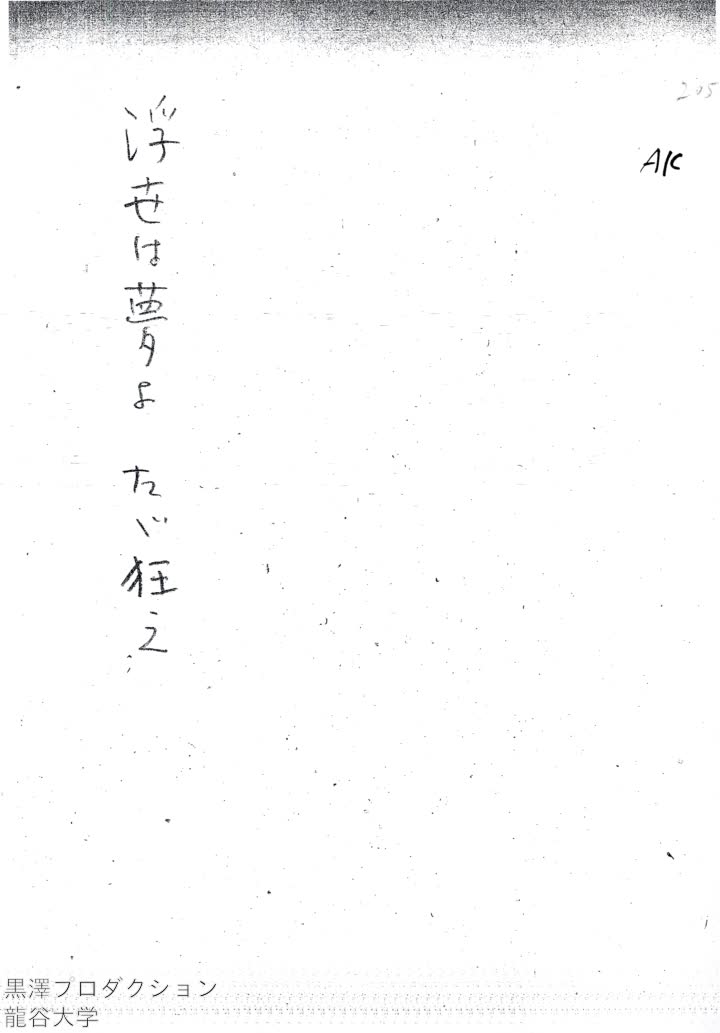 205
AK
浮世は夢よ　たゞ狂え
黒澤プロダクション
龍谷大学